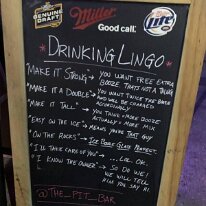 GENUINE
DRAFT
Miller
Good call.
Lite
*DRINKING LINGO*
"MAKE IT STRONG" → YOU WANT FREE EXTRA
BOOZE. THAT'S NOT A THING
"MAKE IT A DOUBLE" → YOU WANT TWICE THE BOOZE
AND WILL BE CHARGED
ACCORDINGLY
"MAKE IT TALL" → YOU THINK MORE BOOZE
ACTUALLY = MORE MIX
"EASY ON THE ICE" → MEANS YOU'RE THAT GUY
"ON THE ROCKS" → ICE
"I'LL TAKE CARE OF YOU" → ...LOL. OK.
"I KNOW THE OWNER" → SO DO WE!
WE WILL TELL
HIM YOU SAY HI
@THE_PIT_BAR